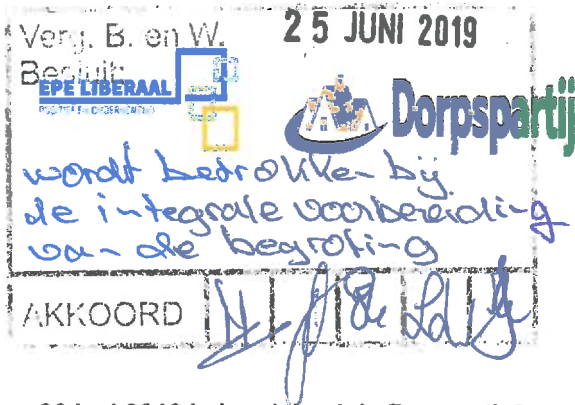 Verg. B. en W. 25 JUNI 2019
Besluit:
EPE LIBERAAL
Dorpspartij
wordt betrokken bij
de integrale voorbereiding
van de begroting
AKKOORD